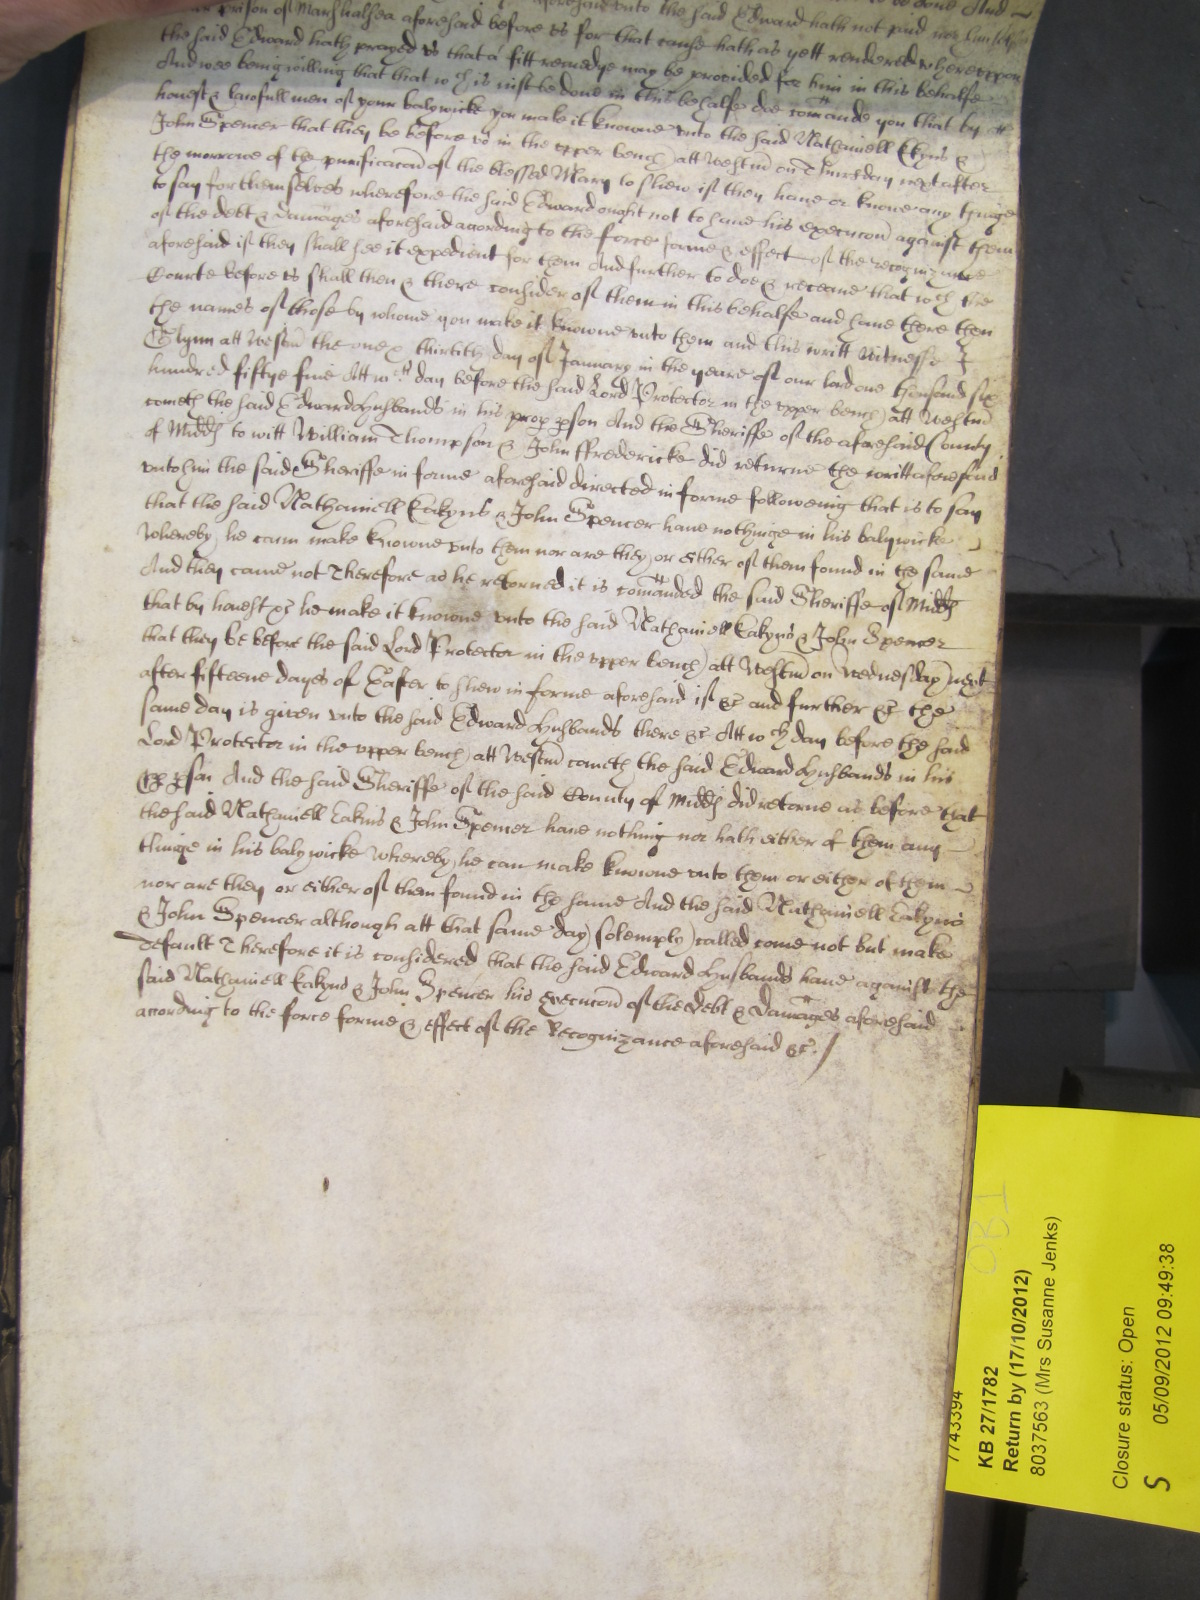 aforesaid vnto the said Edward hath not paid nor
prison of Marshalsea aforesaid before vs for that cause hath as yett rendered whereuppon
the said Edward hath prayed vs that a fitt remedye may be provided for him in this behalfe
And wee being willing that that wch is iust be done in this behalfe doe comande you that by
honest & lawfull men of your balywicke you make it knowne vnto the said Nathaniell Ekyns &
John Spencer that they be before vs in the vpper bench att Westm on Thursday next after
the morrowe of the purificacon of the blessed Mary to shew if they haue or knowe any thinge
to say for themselves wherefore the said Edward ought not to haue his execucon against them
of the debt & damages aforesaid according to the force forme & effect of the recognizance
aforesaid if they shall see it expedient for them And further to doe & receaue that wch the
Courte before vs shall then & there consider of them in this behalfe and haue there then
the names of those by whome you make it knowne vnto them and this writt Witnesse J
Glynn att Westm the one & thirtith day of January in the yeare of our lord one thousand six
hundred fiftye fiue Att wch day before the said Lord Protector in the vpper bench att Westm
cometh the said Edward Husbands in his prop pson And the Sheriffe of the aforesaid County
of Midds to witt William Thompson & John Ffredericke did returne the writt aforesaid
vnto him the said Sheriffe in forme aforesaid directed in forme followeing that is to say
that the said Nathaniell Eakyns & John Spencer haue nothinge in his balywicke
Whereby he cann make knowne vnto them nor are they or either of them found in the same
And they came not Therefore as he retorned it is comanded the said Sheriffe of Midds
that by honest &c he make it knowne vnto the said Nathaniell Eakyns & John Spencer
that they be before the said Lord Protector in the vpper bench att Westm on Wednesday next
after fifteene dayes of Easter to shew in forme aforesaid if &c and further &c the
same day is given vnto the said Edward Husbands there &c Att wch day before the said
Lord Protector in the vpper bench att Westm cometh the said Edward Husbands in his
pp pson And the said Sheriffe of the said County of Midds did retorne as before that
the said Nathaniell Eakins & John Spencer haue nothing nor hath either of them any
thinge in his balywicke whereby he can make knowne vnto them or either of them
nor are they or either of them found in the same And the said Nathaniell Eakyns
& John Spencer although att that same day solemply called come not but make
default Therefore it is considered that the said Edward Husbands haue against the
said Nathaniell Eakyns & John Spencer his execucon of the debt & damages aforesaid
according to the force forme & effect of the Recognizance aforesaid &c
7743394
KB 27/1782
Return by (17/10/2012)
8037563 (Mrs Susanne Jenks)
Closure status: Open
05/09/2012 09:49:38
S